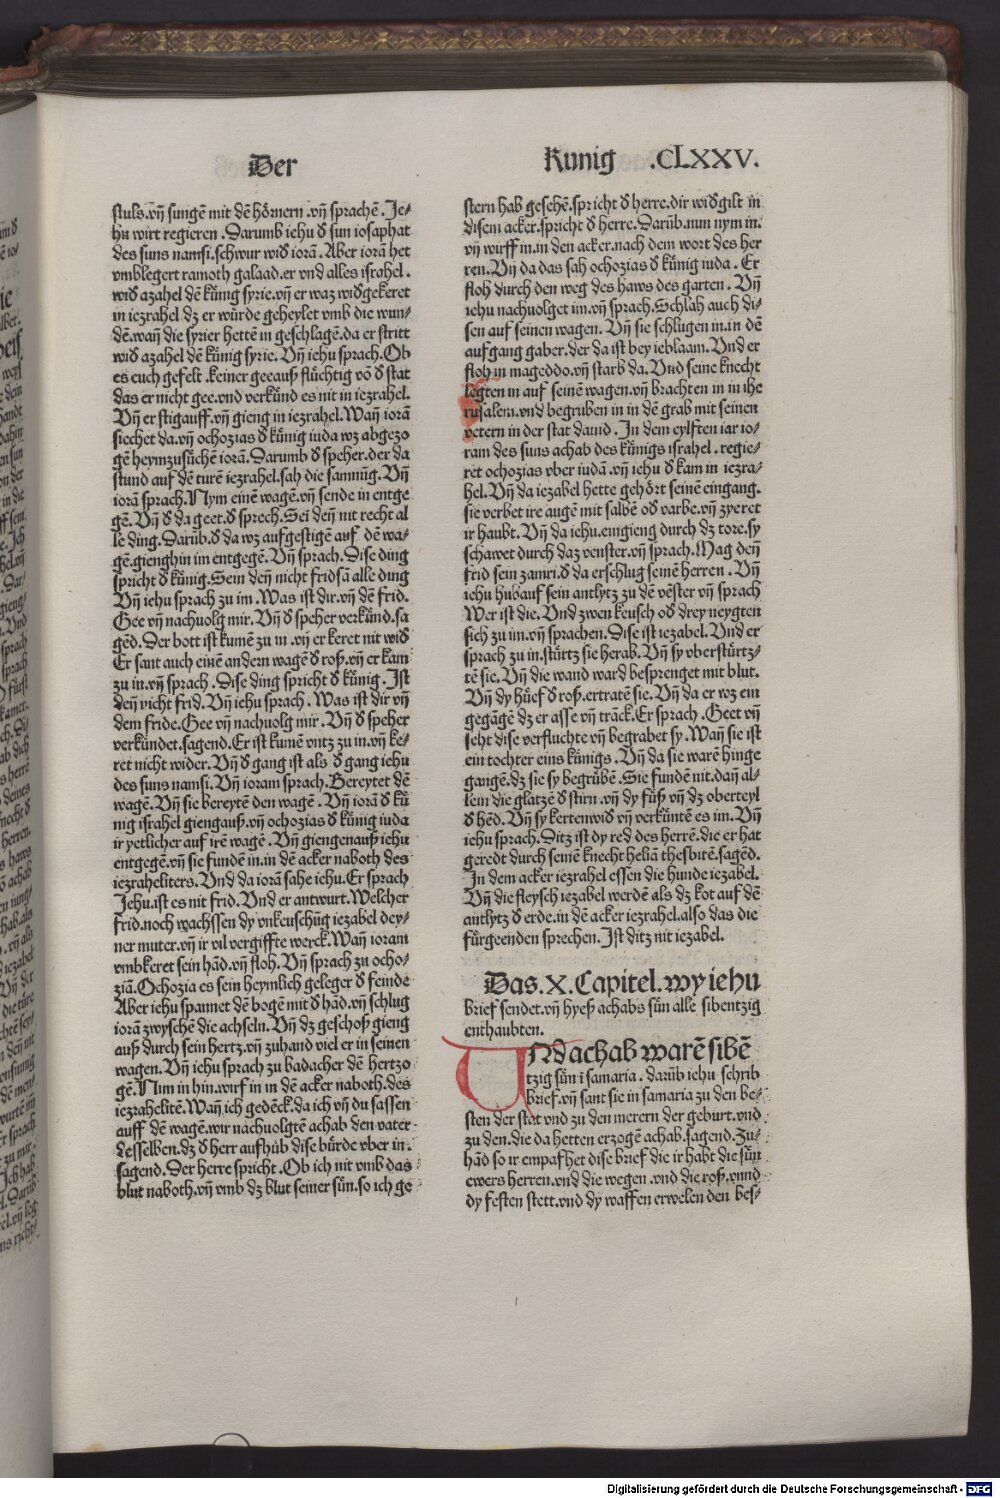 Der
Kunig .CLXXV.
stuls.vñ sungē mit dē hörnern .vñ sprachē . Je⸗
hu wirt regieren . Darumb iehu d̕ sun iosaphat
des suns namsi.schwur wid̕ iorā. Aber iorā het
vmblegert ramoth galaad.er vnd alles israhel.
wid̕ azahel dē künig syrie.vñ er waz wid̕gekeret
in iezrahel dz er würde geheylet vmb die wun⸗
dē.wañ die syrier hettē in geschlagē.da er stritt
wid̕ azahel dē künig syrie. Vñ iehu sprach.Ob
es euch gefelt .keiner geeauß flüchtig vō d̕ stat
das er nicht gee.vnd verkünd es nit in iezrahel.
Vñ er stigauff.vñ gieng in iezrahel.Wañ iorā
siechet da.vñ ochozias d̕ künig iuda wz abgezo
gē heymzusůchē iorā.Darumb d̕ speher.der da
stund auf dē turē iezrahel.sah die samnūg.Vñ
iorā sprach.Nym einē wagē.vñ sende in entge
gē. Vñ d̕ da geet.d̕ sprech.Sei deñ nit recht al
le ding.Darüb.d̕ da wz aufgestigē auf dē wa⸗
gē.gienghin im entgegē.Vñ sprach.Dise ding
spricht d̕ künig.Sein deñ nicht fridsā alle ding
Vñ iehu sprach zu im .Was ist dir.vñ dē frid.
Gee vñ nachuolg mir. Vñ d̕ speher verkünd.sa
gēd.Der bott ist kumē zu in .vñ er keret nit wid̕
Er sant auch einē andern wagē d̕ roß.vñ er kam
zu in.vñ sprach .Dise ding spricht d̕ künig . Ist
deñ nicht frid.Vñ iehu sprach .Was ist dir vñ
dem fride.Gee vñ nachuolg mir . Vñ d̕ speher
verkündet.sagend.Er ist kumē vntz zu in.vñ ke⸗
ret nicht wider.Vñ d̕ gang ist als d̕ gang iehu
des suns namsi. Vñ ioram sprach.Bereytet dē
wagē.Vñ sie bereytē den wagē . Vñ iorā d̕ kü
nig israhel giengauß.vñ ochozias d̕ künig iuda
ir yetlicher auf irē wagē . Vñ giengenauß iehu
entgegē.vñ sie fundē in.in dē acker naboth des
iezraheliters.Vnd da iorā sahe iehu.Er sprach
Jehu.ist es nit frid.Vnd er antwurt.Welcher
frid.noch wachssen dy vnkeuschūg iezabel dey⸗
ner muter.vñ ir vil vergiffte werck.Wañ ioram
vmbkeret sein hād.vñ floh. Vñ sprach zu ocho⸗
ziā.Ochozia es sein heymlich geleger d̕ feinde
Aber iehu spannet dē bogē mit d̕ hād.vñ schlug
iorā zwyschē die achseln.Vñ dz geschoß gieng
auß durch sein hertz.vñ zuhand viel er in seinen
wagen. Vñ iehu sprach zu badacher dē hertzo
gē.Nim in hin.wirf in in dē acker naboth.des
iezrahelitē.Wañ ich gedēck.da ich vñ du sassen
auff dē wagē.wir nachuolgtē achab den vater
desselben.dz d̕ herr aufhůb dise bürde vber in.
sagend.Der herre spricht .Ob ich nit vmb das
blut naboth.vñ vmb dz blut seiner sün.so ich ge
stern hab gesehē.spricht d̕ herre.dir wid̕gilt in
disem acker.spricht d̕ herre.Darüb.nun nym in.
vñ wirff in.in den acker.nach dem wort des her
ren.Vñ da das sah ochozias d̕ künig iuda . Er
floh durch den weg des haws des garten . Vñ
iehu nachuolget im.vñ sprach.Schlah auch di⸗
sen auf seinen wagen. Vñ sie schlugen in.in dē
aufgang gaber.der da ist bey ieblaam.Vnd er
floh in mageddo.vñ starb da.Vnd seine knecht
legten in auf seinē wagen.vñ brachten in in ihe
rusalem.vnd begruben in in dē grab mit seinen
vetern in der stat dauid . In dem eylften iar io⸗
ram des suns achab des künigs israhel . regie⸗
ret ochozias vber iudā .vñ iehu d̕ kam in iezra⸗
hel.Vñ da iezabel hette gehört seinē eingang.
sie verbet ire augē mit salbē od̕ varbe.vñ zyeret
ir haubt. Vñ da iehu.eingieng durch dz tore.sy
schawet durch daz venster.vñ sprach.Mag deñ
frid sein zamri.d̕ da erschlug seinē herren . Vñ
iehu hubauf sein antlytz zu dē vēster vñ sprach
Wer ist die. Vnd zwen keusch od̕ drey neygten
sich zu im.vñ sprachen.Dise ist iezabel.Vnd er
sprach zu in.stürtz sie herab.Vñ sy vberstürtz⸗
tē sie.Vñ die wand ward besprenget mit blut.
Vñ dy hüef d̕ roß.ertratē sie.Vñ da er wz ein
gegāgē dz er asse vñ trāck.Er sprach .Geet vñ
seht dise verfluchte vñ begrabet sy .Wañ sie ist
ein tochter eins künigs .Vñ da sie warē hinge
gangē.dz sie sy begrübē.Sie fundē nit.dañ al⸗
lein die glatzē d̕ stirn .vñ dy füß vñ dz oberteyl
d̕ hēd.Vñ sy kertenwid̕ vñ verküntē es im.Vñ
iehu sprach.Ditz ist dy red des herrē.die er hat
geredt durch seinē knecht heliā thesbitē.sagēd.
In dem acker iezrahel essen die hunde iezabel.
Vñ die fleysch iezabel werdē als dz kot auf dē
antlytz d̕ erde.in dē acker iezrahel.also das die
fürgeenden sprechen.Ist ditz nit iezabel.
Das.X.Capitel.wy iehu
brief sendet.vñ hyeß achabs sün alle sibentzig
enthaubten.
VNd achab warē sibē
tzig sün ī samaria . darüb iehu schrib
brief.vñ sant sie in samaria zu den be⸗
sten der stat vnd zu den merern der geburt.vnd
zu den.die da hetten erzogē achab.sagend.Zu⸗
hād so ir empfahet dise brief die ir habt die sün
ewers herren.vnd die wegen .vnd die roß.vnnd
dy festen stett.vnd dy waffen erwelen den bes⸗
Digitalisierung gefördert durch die Deutsche Forschungsgemeinschaft - DFG